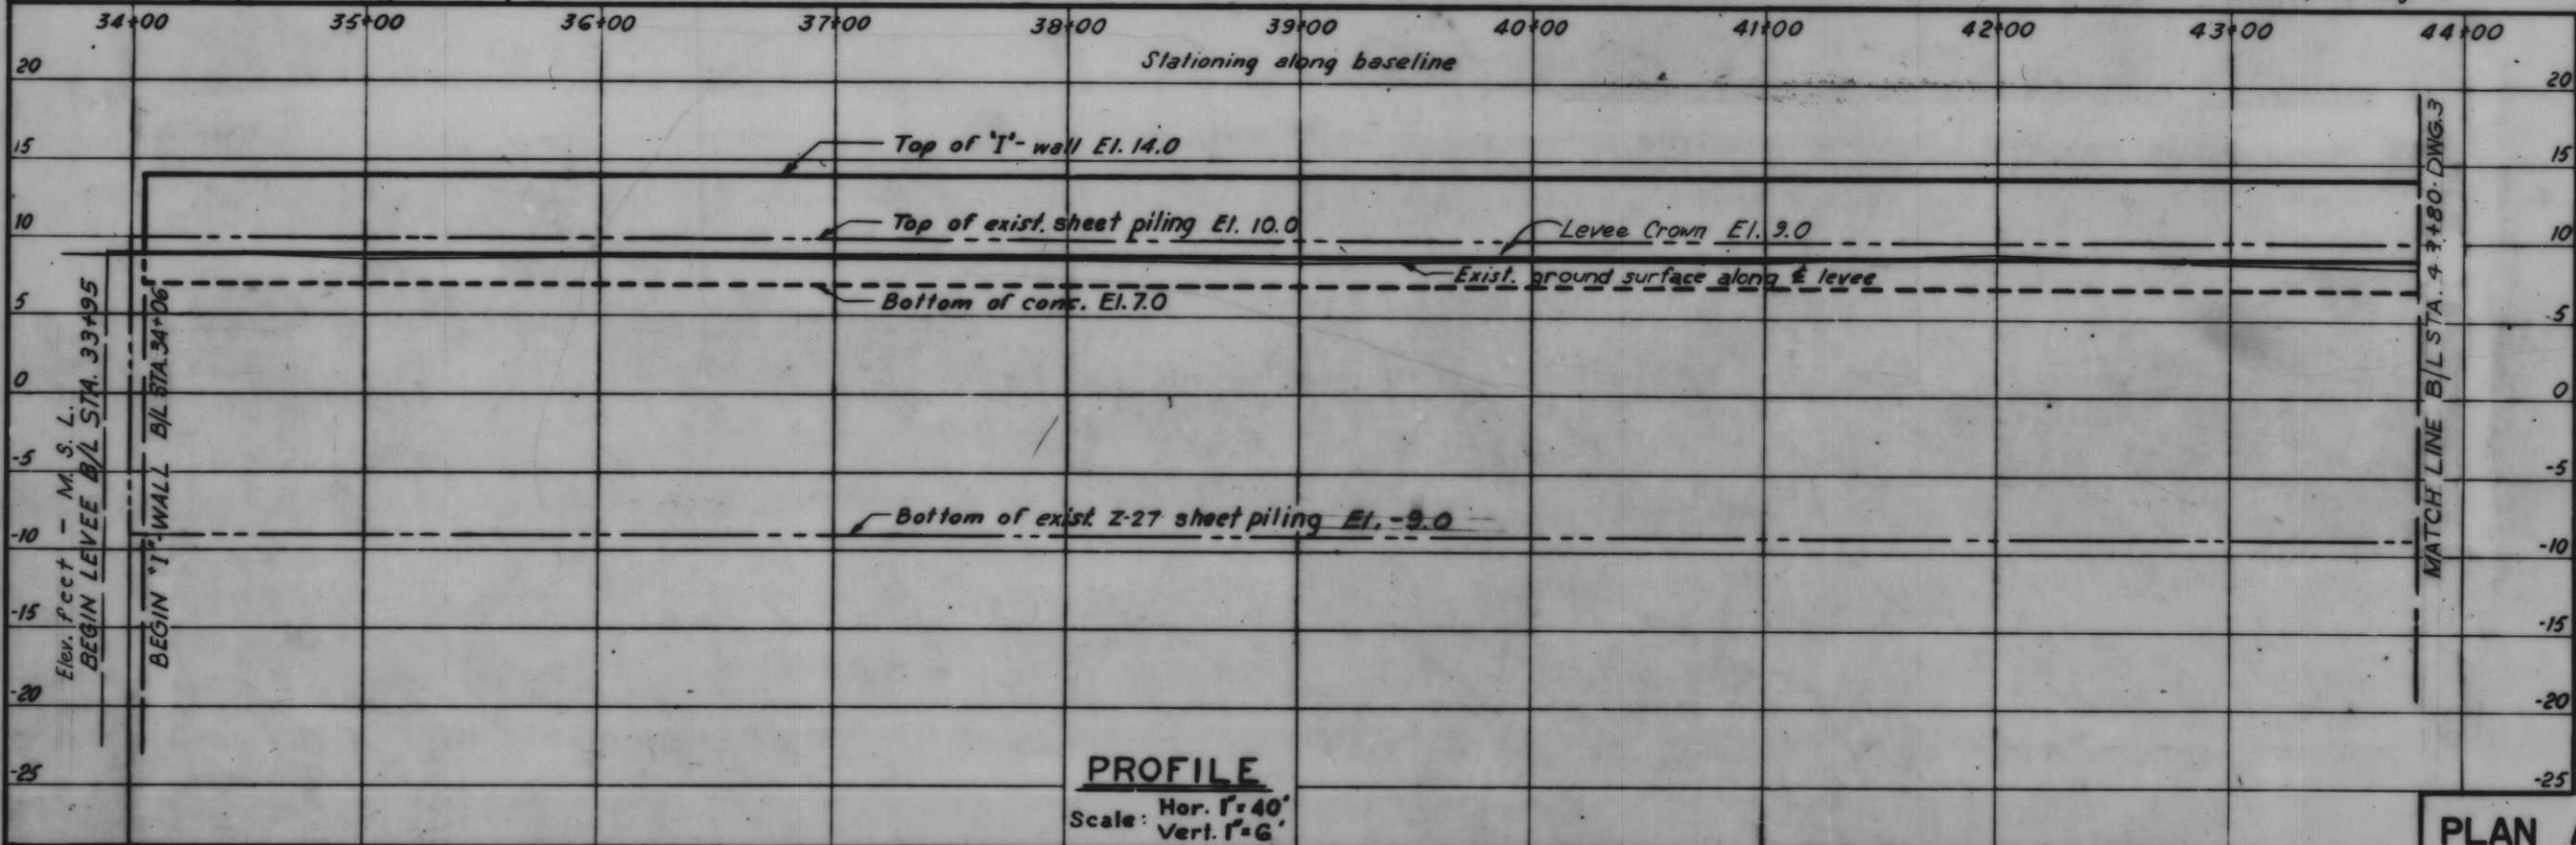 34+00 35+00 36+00 37+00 38+00 39+00 40+00 41+00 42+00 43+00 44+00
Stationing along baseline
20 20
15 15
10 10
5 5
0 0
-5 -5
-10 -10
-15 -15
-20 -20
-25 -25
Top of "I"-wall El. 14.0
Top of exist. sheet piling El. 10.0
Levee Crown El. 9.0
Exist. ground surface along ℄ levee
Bottom of conc. El. 7.0
Bottom of exist. Z-27 sheet piling El. -9.0
Elev. feet - M. S. L.
BEGIN LEVEE B/L STA. 33+95
BEGIN "I"-WALL B/L STA. 34+06
MATCH LINE B/L STA. 43+80-DWG.3
PROFILE
Scale: Hor. 1"=40'
Vert. 1"=6'
PLAN